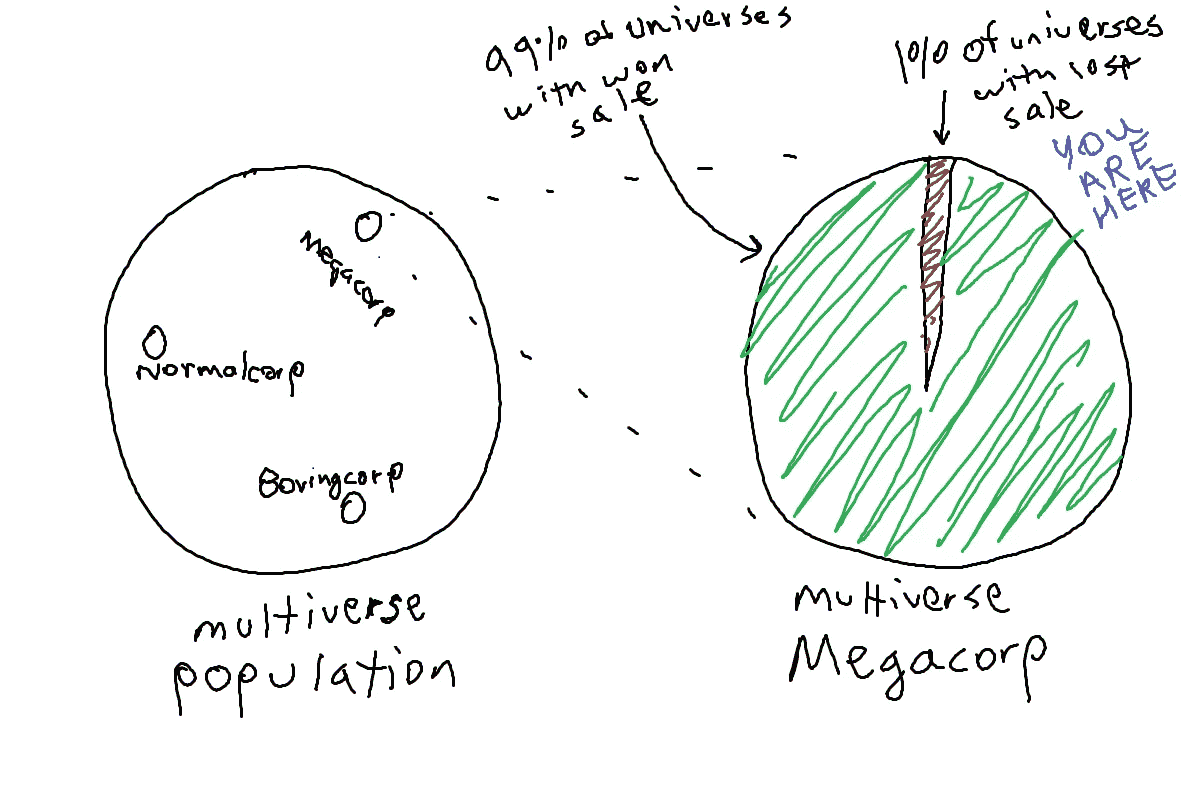 99% of universes
with won
sale
1% of universes
with lost
sale
YOU
ARE
HERE
Megacorp
Normalcorp
Boringcorp
multiverse
population
multiverse
Megacorp